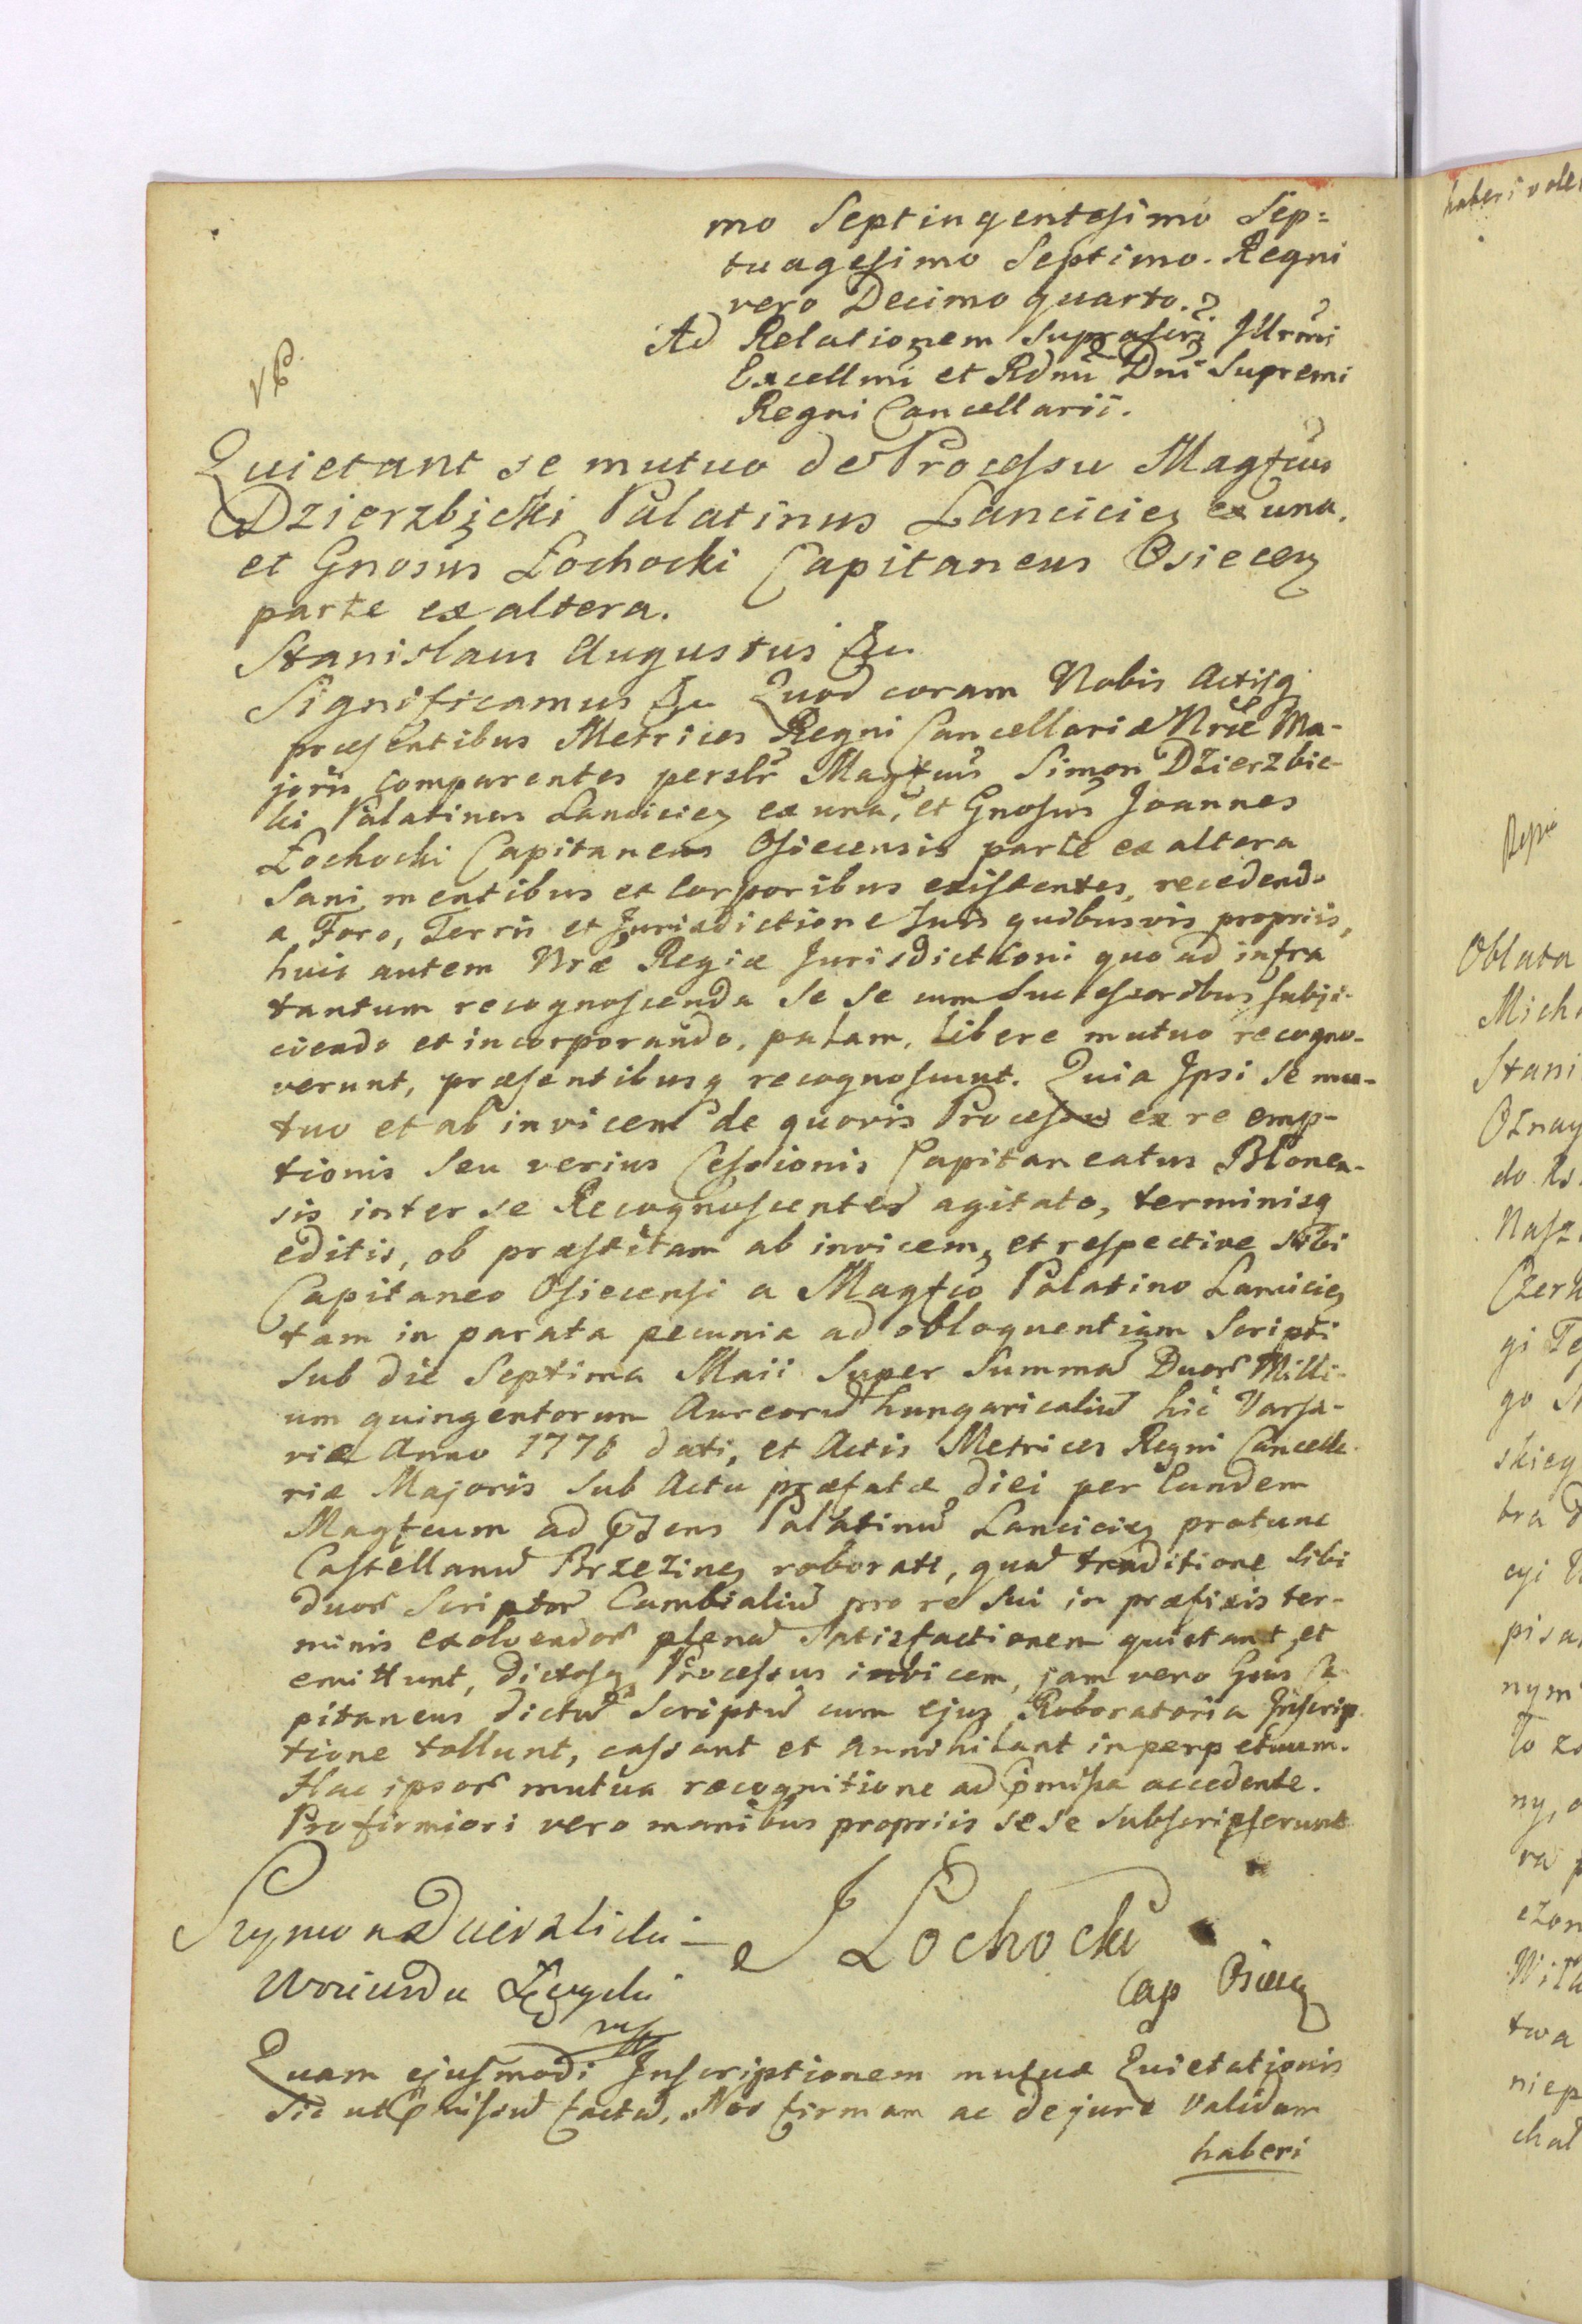 mo Septingentesimo Sep=
tuagesimo Septimo. Regni
vero Decimo quarto.
Ad Relationem Suprascri Illrmi
Excellmi et Rdmi Dni Supremi
Regni Cancellarii.
Quietant se mutuo de Processu Magfcus
Dzierzbicki Palatinus Lancicien ex una,
et Gnosus Łochocki Capitaneus Osiecen
parte ex altera.
Stanislaus Augustus &c
Significamus &c Quod coram Nobis Actisq
præsentibus Metrices Regni Cancellariæ Nræ Ma-
joris comparentes perslr Magfcus Simon Dzierzbic-
ki Palatinus Lancicien ex una, et Gnosus Joannes
Łochocki Capitaneus Osiecensis parte ex altera
Sani mentibus et Corporibus existentes, recedendo
a Foro, Terris et Jurisdictione Suis quibusvis propriis,
huic autem Nræ Regiæ Jurisdictioni quo ad infra
tantum recognoscenda Se Se cum Successoribus subji-
ciendo et incorporando, palam, libere mutuo recogno-
verunt, præsentibusq recognoscunt. Quia Ipsi Se mu-
tuo et ab invicem de quovis Processu ex re emp-
tionis Seu verius Cessionis Capitaneatus Blonen-
sis inter se Recognoscentes agitato, terminisq
editis, ob præstitam ab invicem, et respective sibi
Capitaneo Osiecensi a Magfco Palatino Lancicien
tam in parata pecunia ad obloquentiam Scripti
Sub die Septima Maii Super Summa Duor Milli-
um quingentorum Aureoru hungaricaliu hic Varsa-
viæ Anno 1776 dati, et Actis Metrices Regni Cancella
riæ Majoris Sub Actu præfatæ diei per Eundem
Magfcum ad psens Palatinu Lancicien protunc
Castellanu Brzezinen roborati, qua traditione Sibi
duor Scriptor Cambialiu pro re Sui in præfixis ter-
minis exolvendor plena Satisfactionem quietant, et
emittunt, dictosq Processus invicem, jam vero Gnus Ca
pitaneus dictu Scriptu cum ejus Roboratoria Inscrip
tione tollunt, cassant et Annihilant in perpetuum.
Hac ipsor mutua recognitione ad pmissa accedente.
Pro firmiori vero manibus propriis se se subscripserunt
Szymon Dzierzbicki J Łochocki
Woiewoda Łęczycki Cap Osiecen
Quam ejusmodi Inscriptionem mutuæ Quietationis
Sic ut pmissu facta, Nos firmam ac de jure Validam
haberi
haberi vole
Oblata
Stani
Oznay
Nasz
gi
go
skieg
tra
cyi
nym
To
ny, o
ra
twa
niep
chał